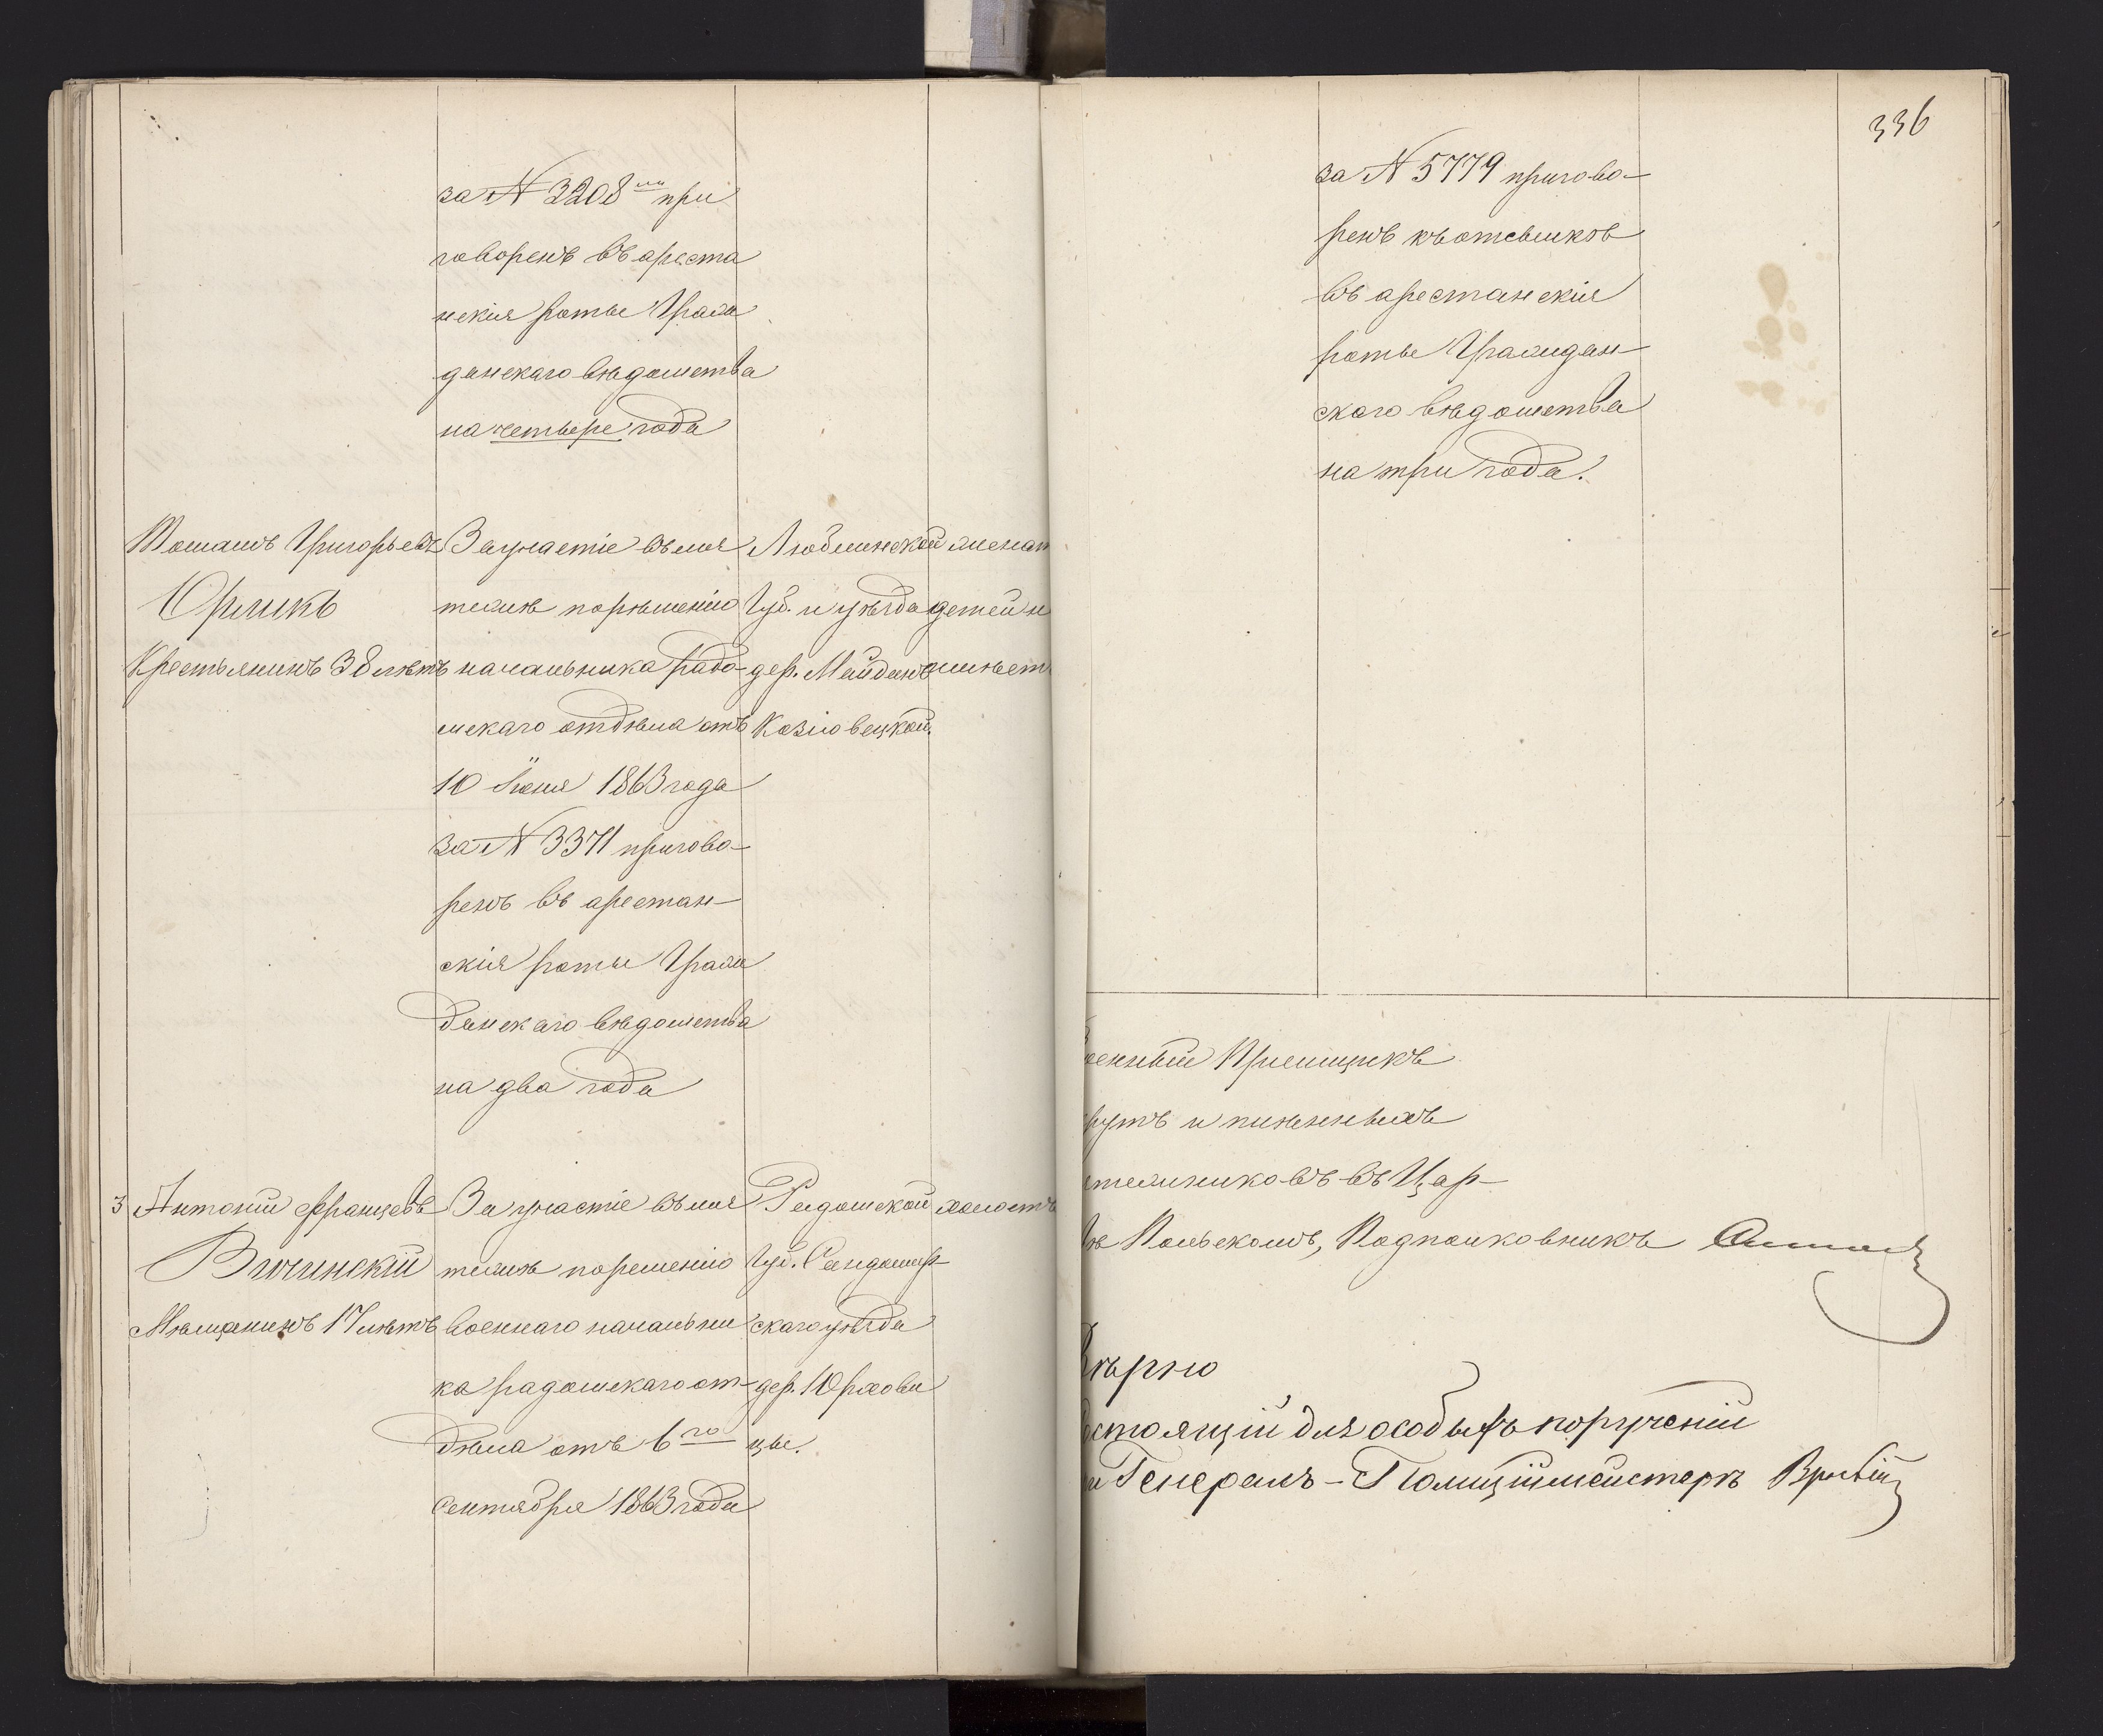 за N 3208 при
говоренъ въареста
нскія роты Граж
данскаго вѣдомства
на четыре года
Томашъ Григорьевъ
Орликъ
Крестьянинъ 38 лѣтъ
За участіе въ мя
тежѣ порѣшенію
начальника радо-
мскаго отдѣла отъ
10 Іюня 1863 года
за N 3371 пригово-
ренъ въ арестан-
скія роты Граж
данскаго вѣдомства
на два года
Люблинской
Губ. и уѣзда
дер. Майданъ
Козловецкой.
женат
детей н
имѣет
3 Антоній Францевъ
Вичинскій
Мѣщанинъ 17 лѣтъ
За участіе въ мя
тежѣ порешенію
военнаго начальни
ка радомскаго от-
дѣла отъ 6го
Сентября 1863 года
Радомской
Губ. Сандомир-
скаго уѣзда
дер.
цы.
холостъ
336
за N 5779 пригово-
ренъ къ отсылкѣ
въ арестанскія
роты Граждан-
скаго вѣдомства
на три года.
оенный Пріемщикъ
рутъ и плѣнныхъ
тежниковъ въ Цар-
вѣ Польскомъ, Подполковникъ
Вѣрно
остоящій для особыхъ порученій
и Генералъ-Полиціймейстеръ